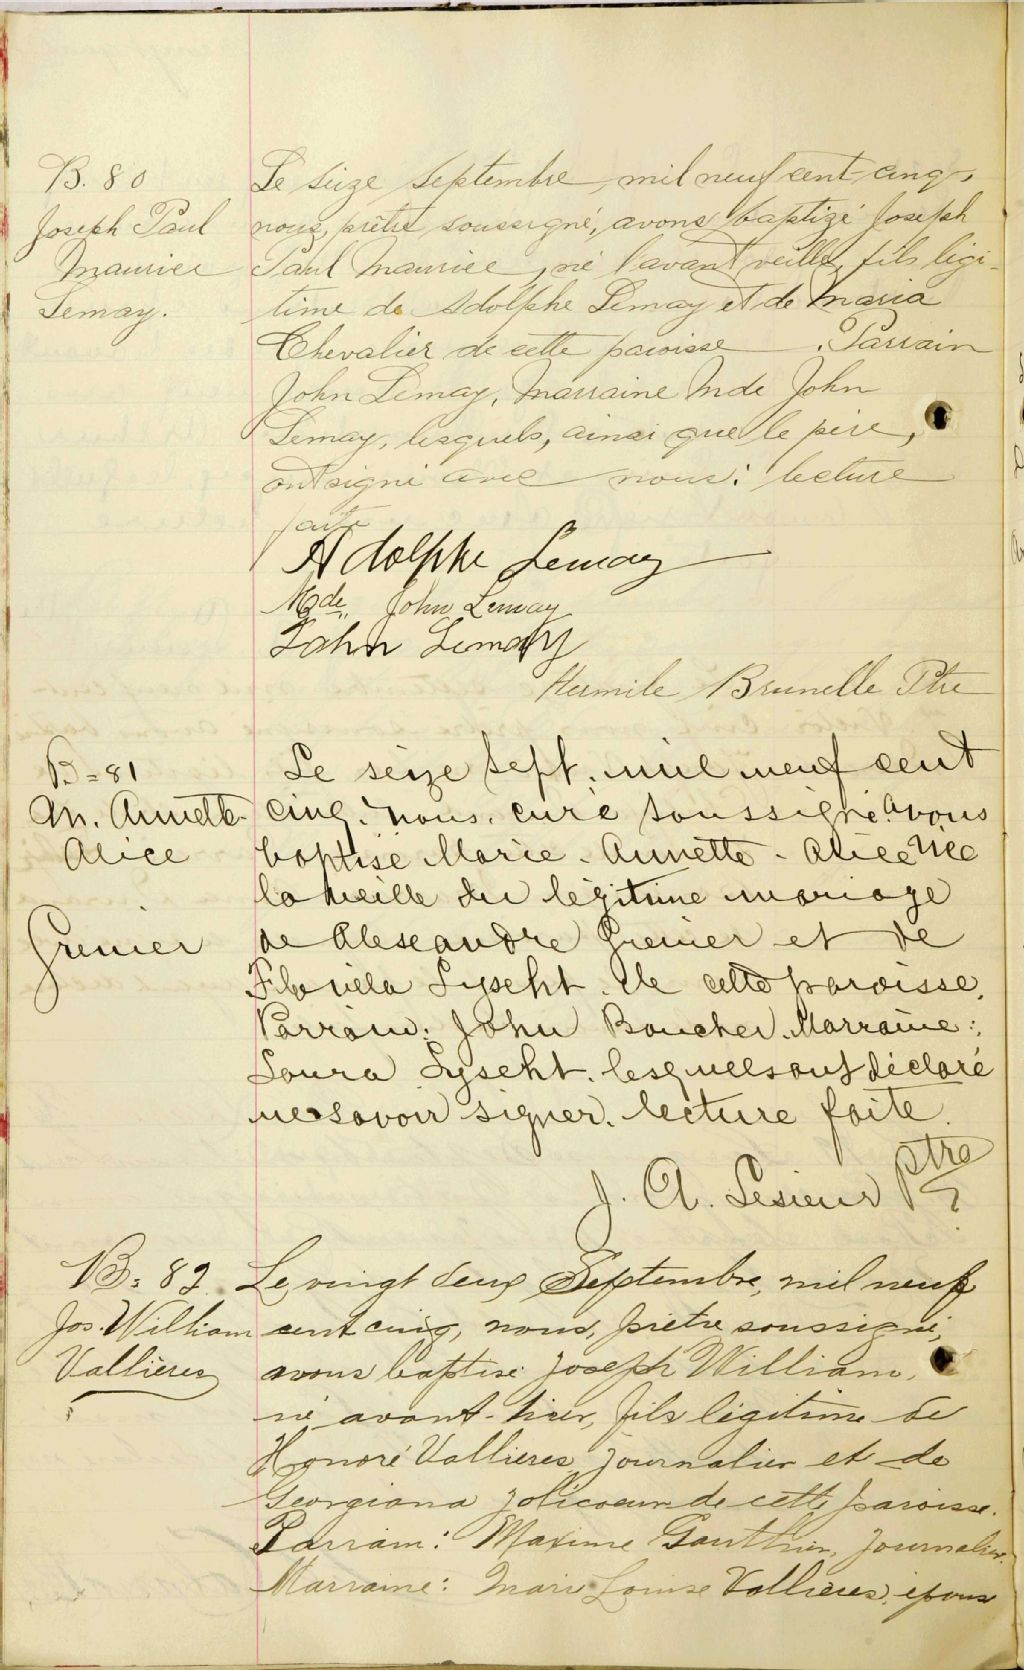 B. 80
Joseph Paul
Maurice
Lemay.
Le seize septembre mil neuf cent cinq,
nous, prêtre soussigné, avons baptizé Joseph
Paul Maurice, né l'avant veille, fils légi-
time de Adolphe Lemay et de Maria
Chevalier de cette paroisse. Parrain
John Lemay, Marraine Mde John
Lemay, lesquels, ainsi que le père,
ont signé avec nous: lecture
faite
Adolphe Lemay
Mde John Lemay
John Lemay
Hermile Brunelle Ptre
B=81
M. Annette
Alice
Grenier
Le seize sept. mil neuf cent
cinq. nous, curé soussigné avons
baptisé Marie-Annette-Alice née
la veille du légitime mariage
de Alexandre Grenier et de
Lyseht. de cette paroisse.
Parrain: John Boucher. Marraine:
Laura Lyseht. lesquels ont déclaré
ne savoir signer. lecture faite.
J. A. Lesieur Ptre
B=82
Jos. William
Vallieres
Le vingt deux Septembre, mil neuf
cent cinq, nous, prêtre soussigné,
avons baptisé Joseph William,
né avant-hier, fils légitime de
Honoré Vallieres, journalier et de
Georgiana Jolicoeur de cette paroisse.
Parrain: Maxime Gauthier, journalier.
Marraine: Marie Louise Vallieres, épouse